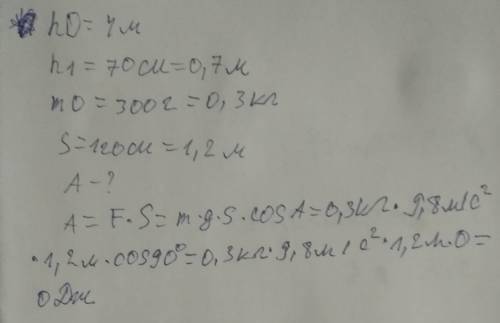 h0=4м
h1=70см=0,7м
m0=300г=0,3кг
S=120см=1,2м
A-?
A=F·S=m·g·S·cosA=0,3кг·9,8м/с²
·1,2м·cos90°=0,3кг·9,8м/с²·1,2м·0=
0Дж